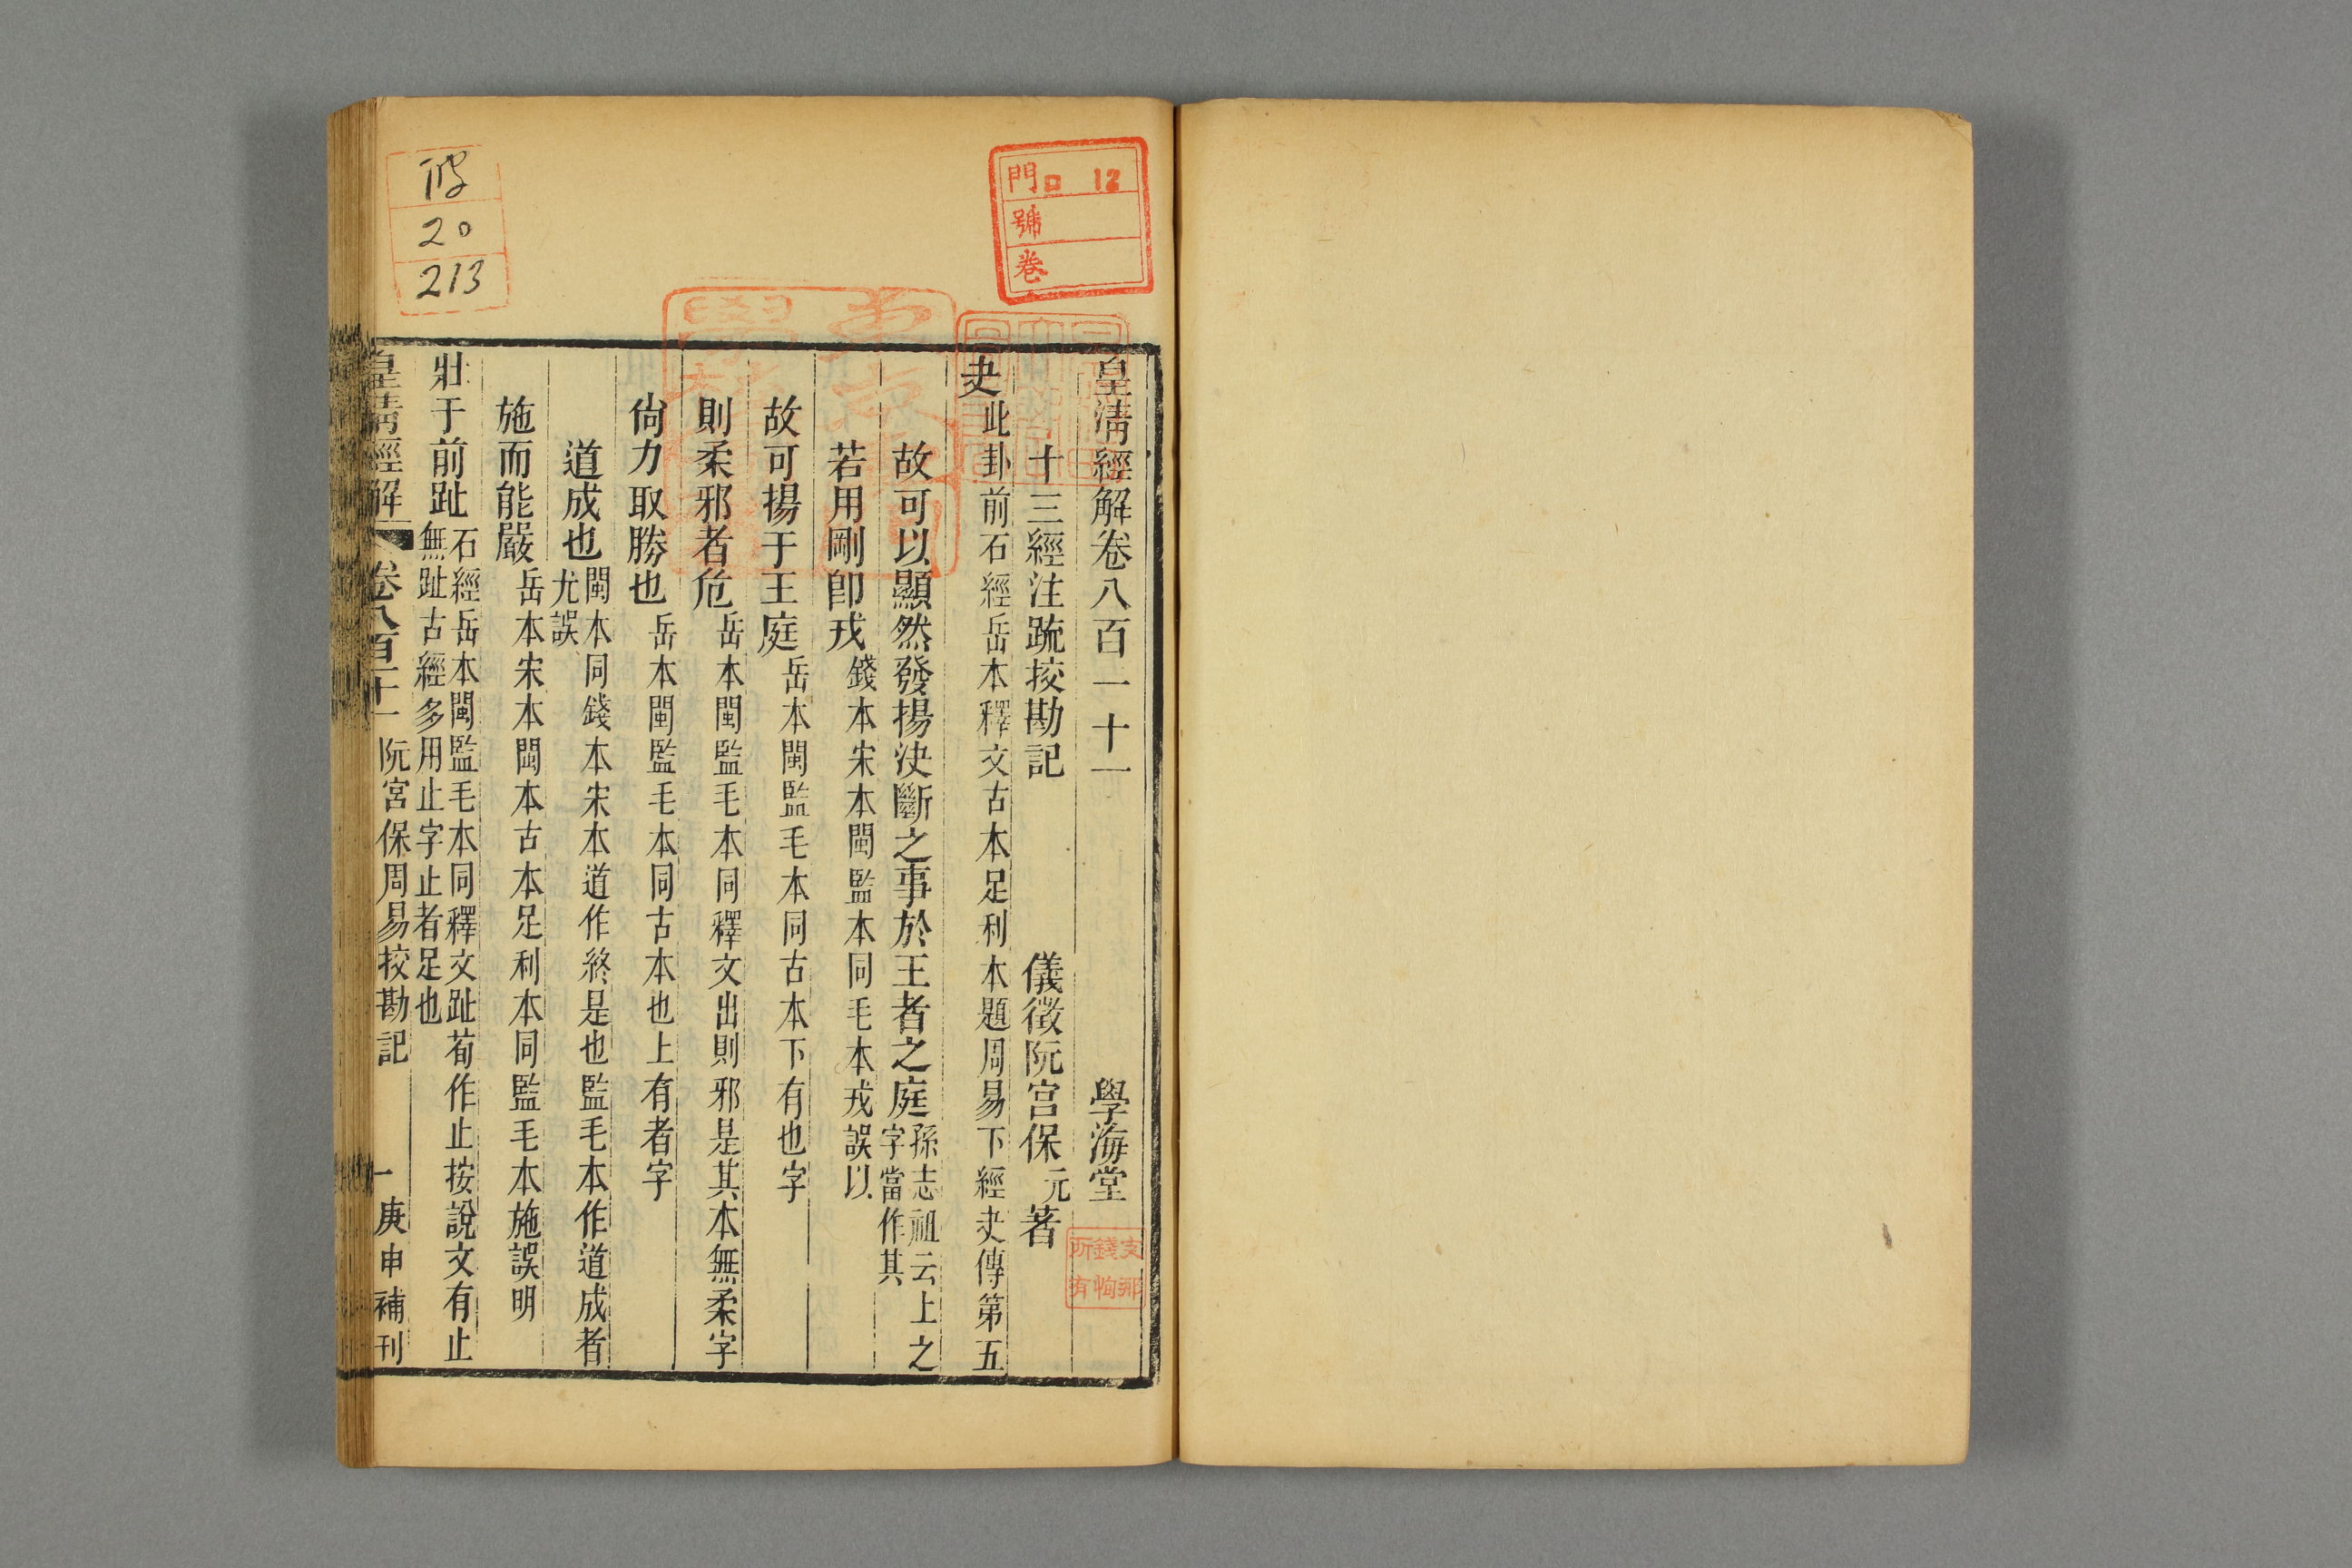 皇清經解卷八百一十一
學海堂
十三經注䟽挍勘記
儀徵阮宫保元著
夬此卦前石經岳本釋文古本足利本題周易下經夬傳第五
故可以顯然發揚決斷之事於王者之庭孫志祖云上之
字當作其
若用剛卽戎錢本宋本閩監本同毛本戎誤以
故可揚于王庭岳本閩監毛本同古本下有也字
則柔邪者危岳本閩監毛本同釋文出則邪是其本無柔字
尙力取勝也岳本閩監毛本同古本也上有者字
道成也閩本同錢本宋本道作終是也監毛本作道成者
尤誤
施而能嚴岳本宋本閩本古本足利本同監毛本施誤明
壯于前趾石經岳本閩監毛本同釋文趾荀作止按說文有止
無趾古經多用止字止者足也
皇清經解
卷八百十一
阮宮保周易挍勘記
一
庚申補刊
門口 12
號
卷
20
213
支那
錢恂
所有